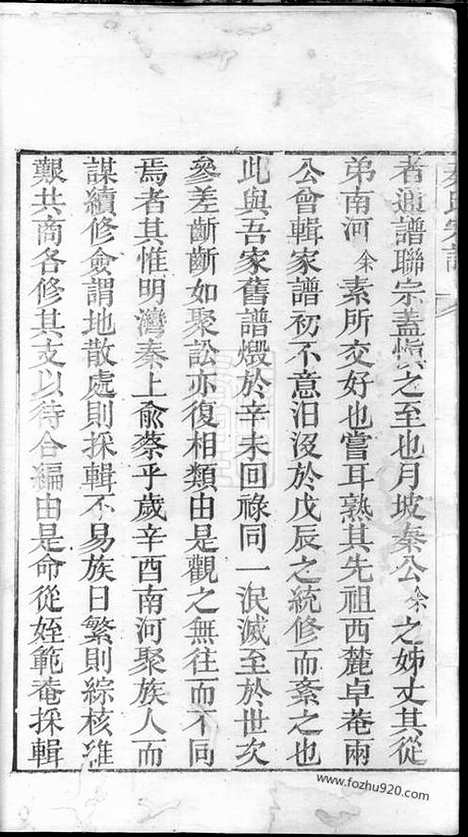 者通譜聯宗蓋慎之至也月坡秦公余之姊丈其從
弟南河余素所交好也嘗耳熟其先祖西麓卓菴兩
公會輯家譜初不意汨沒於戊辰之統修而紊之也
此與吾家舊譜燬於辛未回祿同一泯滅至於世次
參差齗齗如聚訟亦復相類由是觀之無往而不同
焉者其惟明灣秦上俞蔡乎歲辛酉南河聚族人而
謀續修僉謂地散處則採輯不易族日繁則綜核維
艱共商各修其支以待合編由是命從姪範菴採輯
www.fozhu920.com